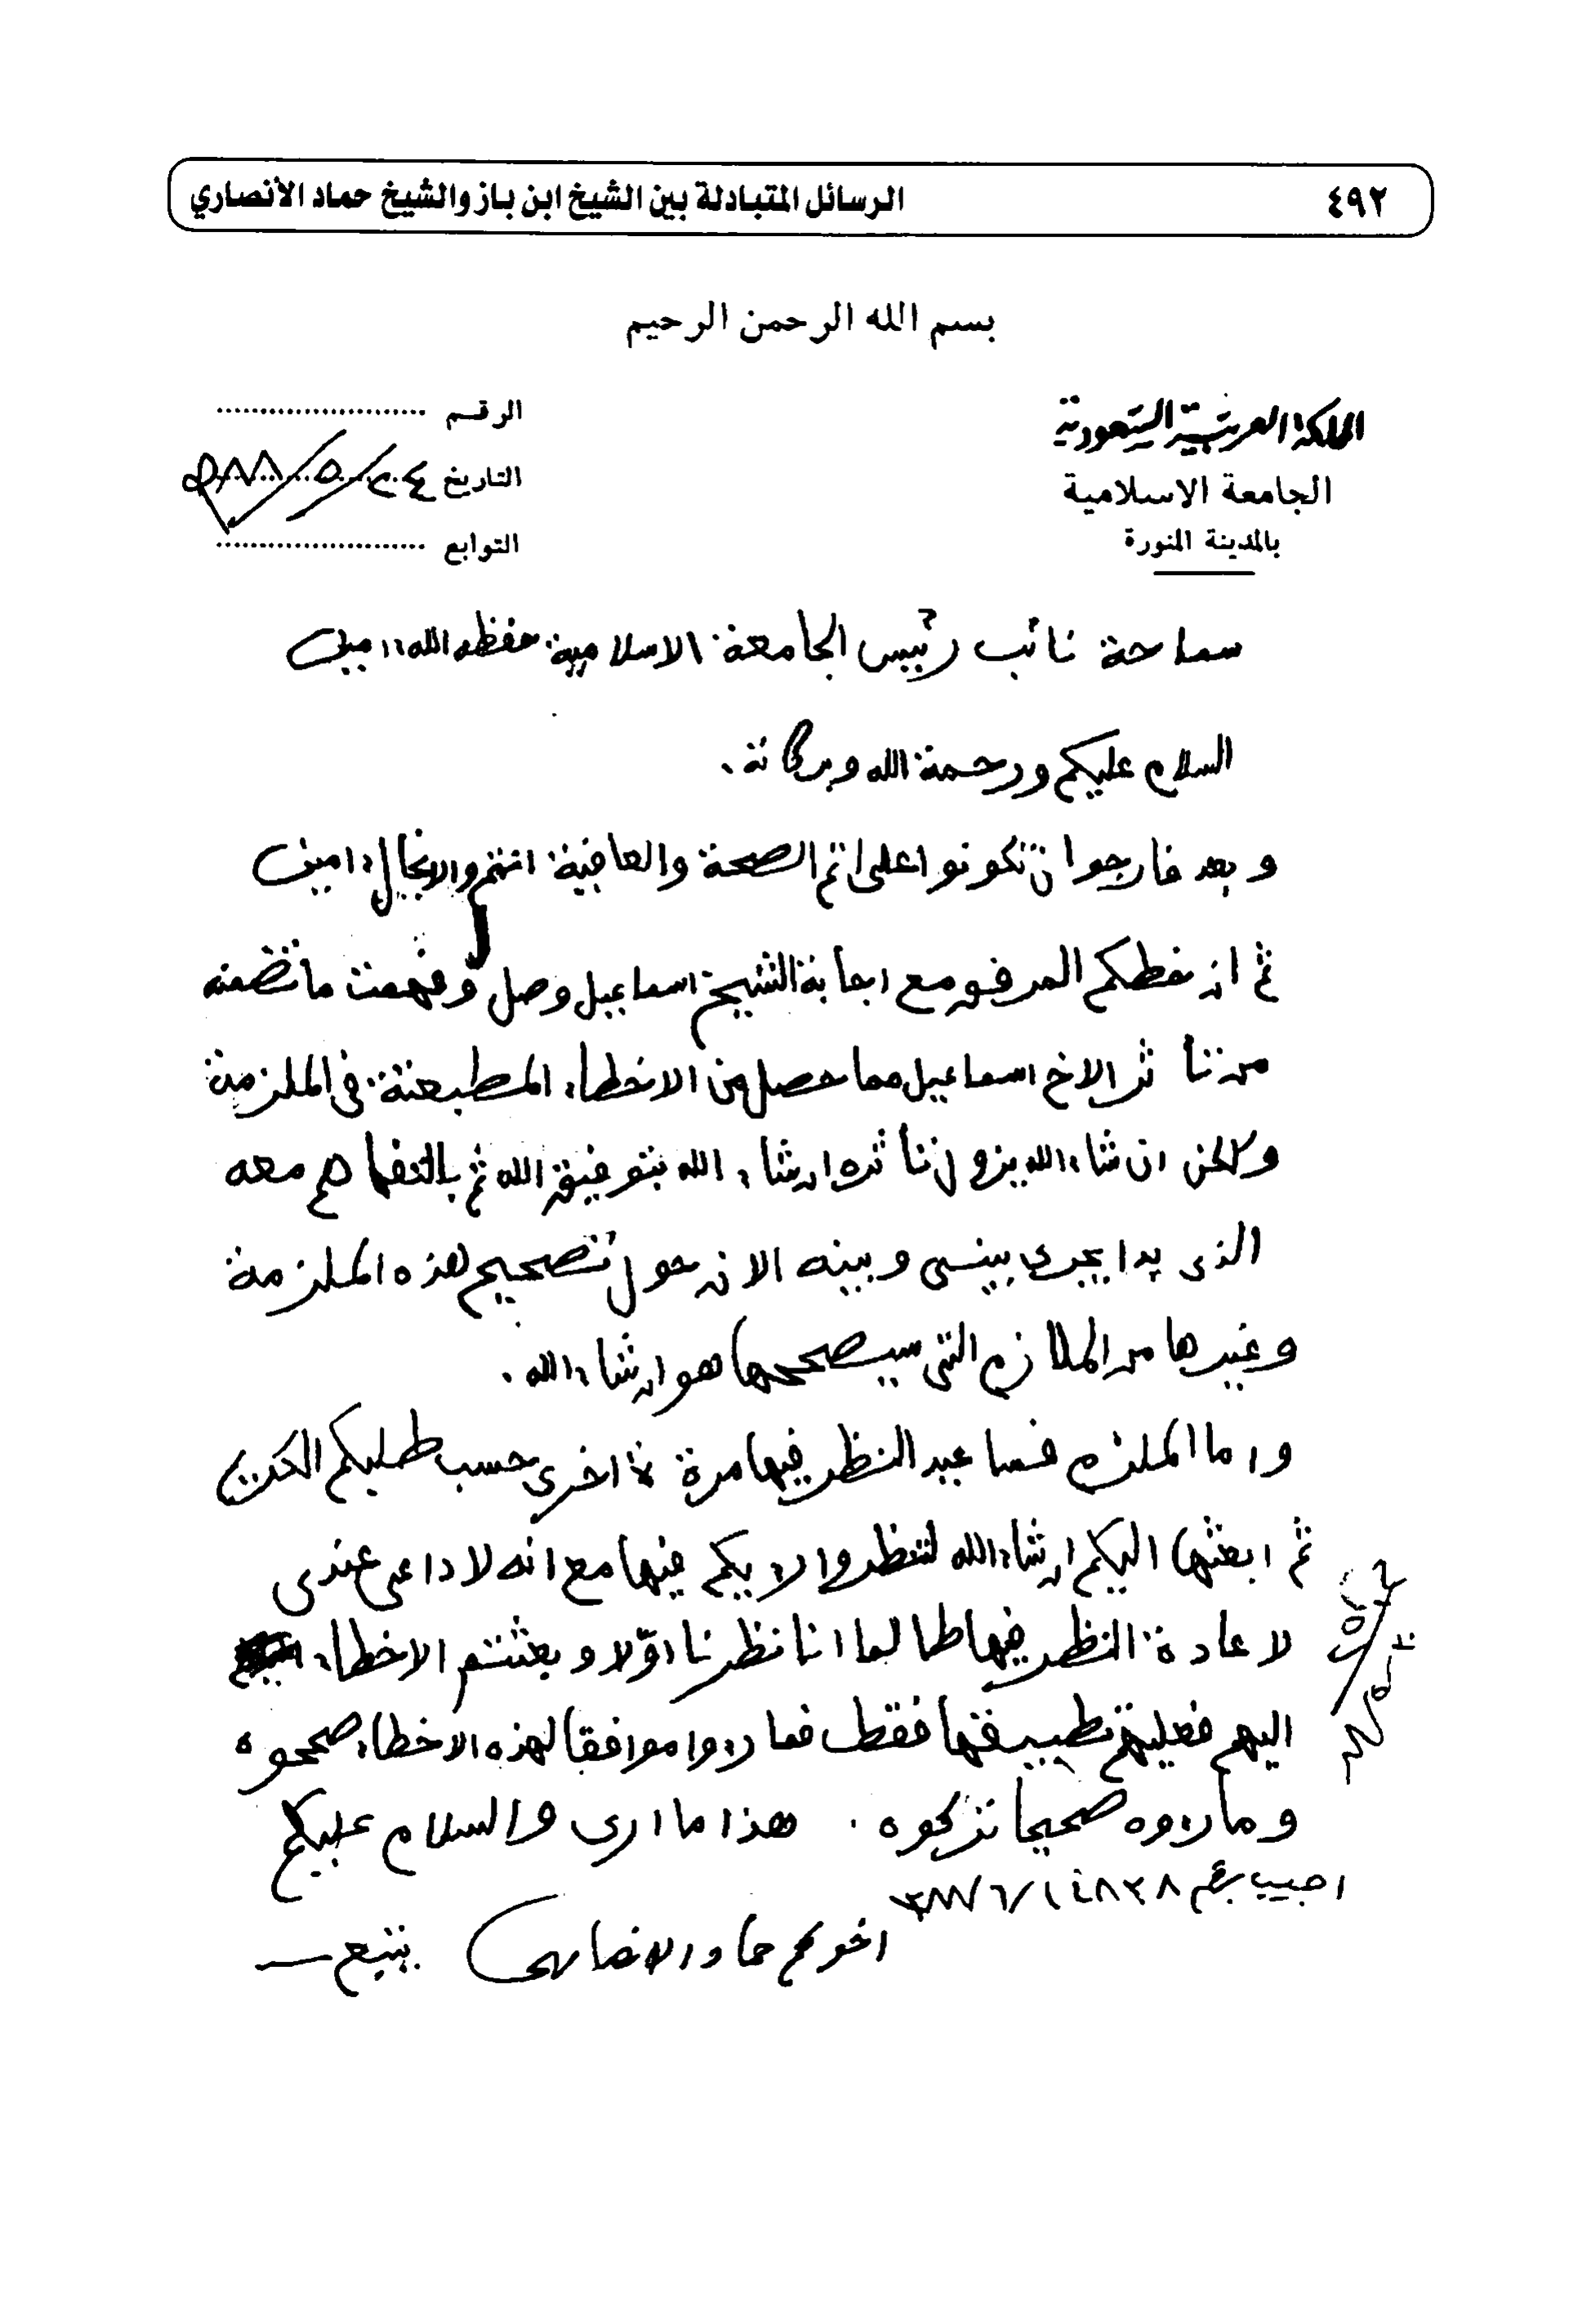 ٤٩٢
الرسائل المتبادلة بين الشيخ ابن باز والشيخ حماد الأنصاري
بسم الله الرحمن الرحيم
المملكة العربية السعودية
الجامعة الاسلامية
بالمدينة المنورة
الرقم
التاريخ ٢٠٤/٥/٨٨ه
التوابع
سماحة نائب رئيس الجامعة الاسلامية حفظه الله امين
السلام عليكم ورحمة الله وبركاته.
وبعد فارجوا ان تكونوا على اتم الصحة والعافية انتم والانجال امين
ثم ان خطكم المرفق مع اجابة الشيخ اسماعيل وصل وفهمت ما تضمنه
من تأثر الاخ اسماعيل مما حصل من الاخطاء المطبعية في الملزمة
ولكن ان شاء الله يزول تأثره ان شاء الله بتوفيق الله ثم بالتفاهم معه
الذى بدا يجرى بينى وبينه الان حول تصحيح هذه الملزمة
وغيرها من الملازم التى سيصححها هو ان شاء الله.
واما الملزم فساعيد النظر فيها مرة اخرى حسب طلبكم الكريم
ثم ابعثها اليكم ان شاء الله لتنظروا رايكم فيها مع انه لا داعى عندى
لاعادة النظر فيها طالما اننا نظرنا اولا وبعثتم الاخطاء
اليهم فعليهم تطبيقها فقط فما رءوا موافقا لهذه الاخطاء صححوه
وما رءوه صحيحا تركوه. هذا ما ارى والسلام عليكم
اجيب برقم
اخوكم حماد الانصارى